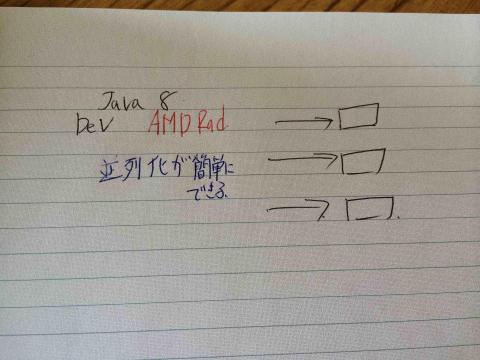 Java 8
Dev AMD Rad
並列化が簡単に
できる